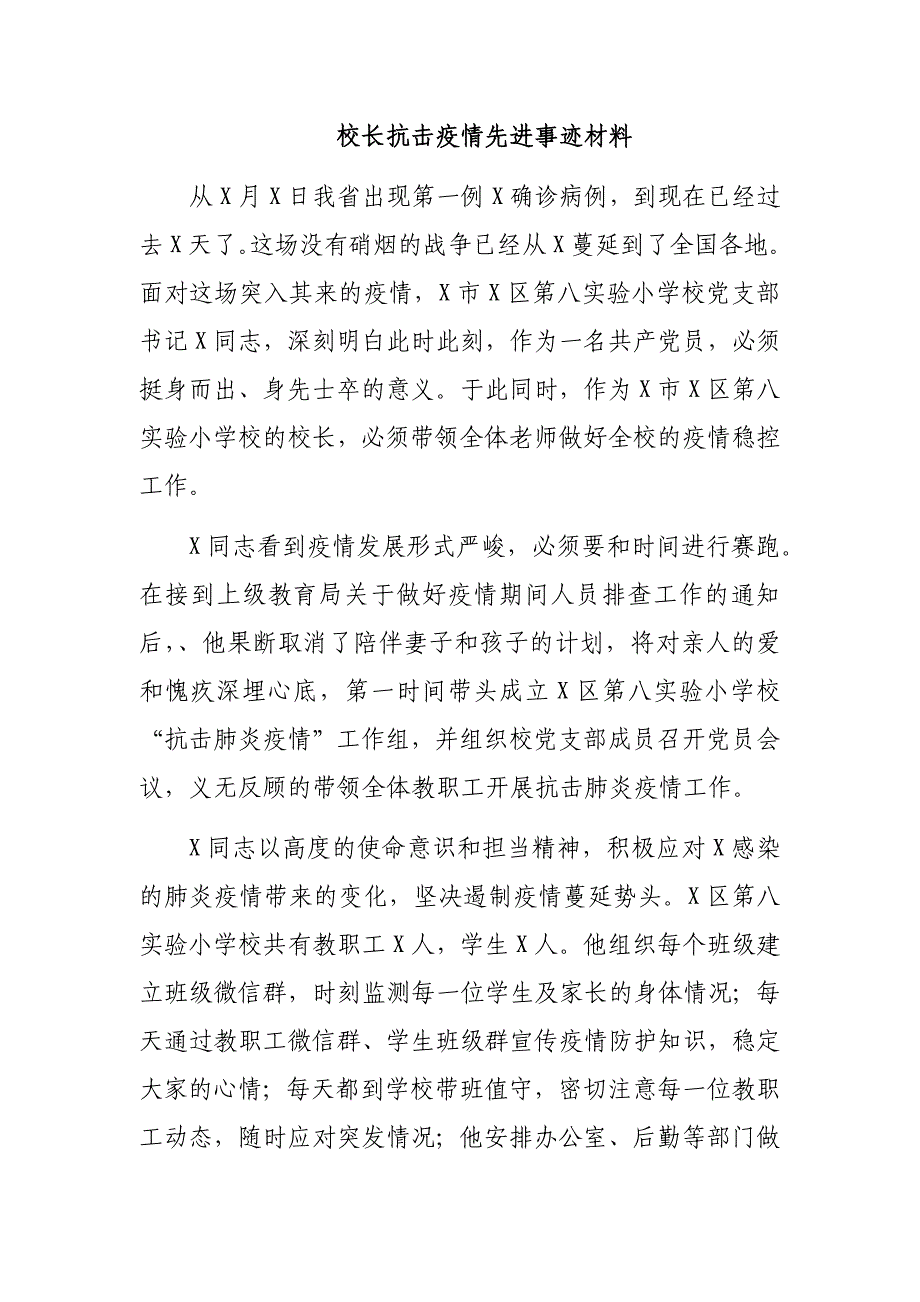 校长抗击疫情先进事迹材料
从 X 月 X 日我省出现第一例 X 确诊病例，到现在已经过
去 X 天了。这场没有硝烟的战争已经从 X 蔓延到了全国各地。
面对这场突入其来的疫情，X 市 X 区第八实验小学校党支部
书记 X 同志，深刻明白此时此刻，作为一名共产党员，必须
挺身而出、身先士卒的意义。于此同时，作为 X 市 X 区第八
实验小学校的校长，必须带领全体老师做好全校的疫情稳控
工作。
X 同志看到疫情发展形式严峻，必须要和时间进行赛跑。
在接到上级教育局关于做好疫情期间人员排查工作的通知
后，、他果断取消了陪伴妻子和孩子的计划，将对亲人的爱
和愧疚深埋心底，第一时间带头成立 X 区第八实验小学校
“抗击肺炎疫情”工作组，并组织校党支部成员召开党员会
议，义无反顾的带领全体教职工开展抗击肺炎疫情工作。
X 同志以高度的使命意识和担当精神，积极应对 X 感染
的肺炎疫情带来的变化，坚决遏制疫情蔓延势头。X 区第八
实验小学校共有教职工 X 人，学生 X 人。他组织每个班级建
立班级微信群，时刻监测每一位学生及家长的身体情况；每
天通过教职工微信群、学生班级群宣传疫情防护知识，稳定
大家的心情；每天都到学校带班值守，密切注意每一位教职
工动态，随时应对突发情况；他安排办公室、后勤等部门做